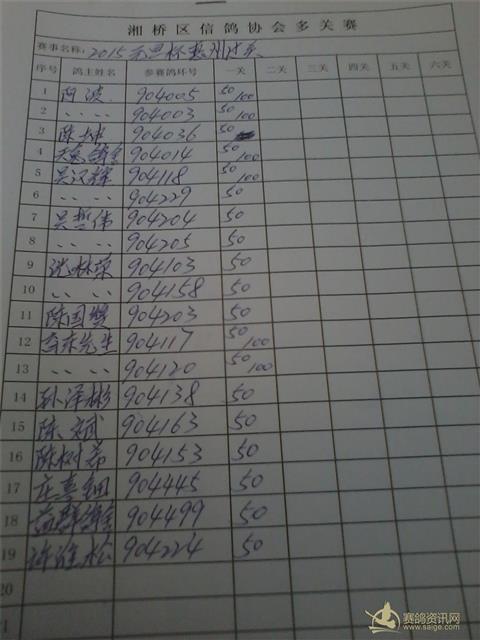 湘桥区信鸽协会多关赛
赛事名称: 2015
序号 鸽主姓名 参赛鸽环号 一关 二关 三关 四关 五关 六关
1 阿波 904005 50/100
2 〃 〃 904003 50/100
3 陈 904036 50
4 904014 50/100
5 吴汉辉 904118 50/100
6 〃 〃 904229 50
7 吴哲伟 904204 50
8 〃 〃 904205 50
9 沈林荣 904103 50
10 〃 〃 904158 50
11 陈国 904203 50
12 先生 904117 50/100
13 〃 〃 904120 50/100
14 孙泽彬 904138 50
15 陈斌 904163 50
16 陈树 904153 50
17 庄 904445 50
18 益群 904499 50
19 许 松 904224 50
20
赛鸽资讯网
www.saige.com